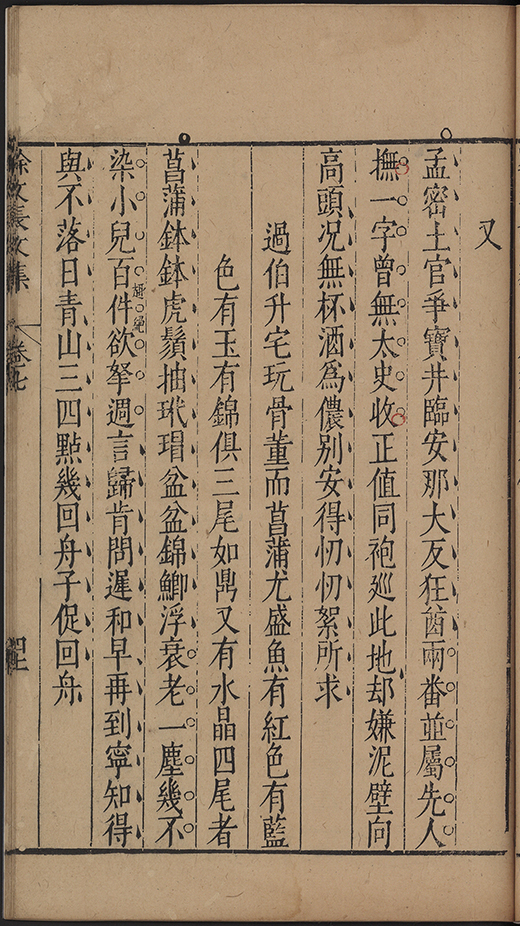 又
孟密土官爭寶井臨安那大反狂酋兩番並屬先人
撫一字曾無太史收正值同袍廵此地却嫌泥壁向
高頭况無杯酒爲儂别安得忉忉絮所求
過伯升宅玩骨董而菖蒲尤盛魚有紅色有藍
色有玉有錦俱三尾如鼎又有水晶四尾者
菖蒲鉢鉢虎鬚抽玳瑁盆盆錦鯽浮衰老一塵幾不
染小兒百件欲拏週言歸肯問遲和早再到寧知得
與不落日青山三四點幾回舟子促回舟
徐文長文集
卷七